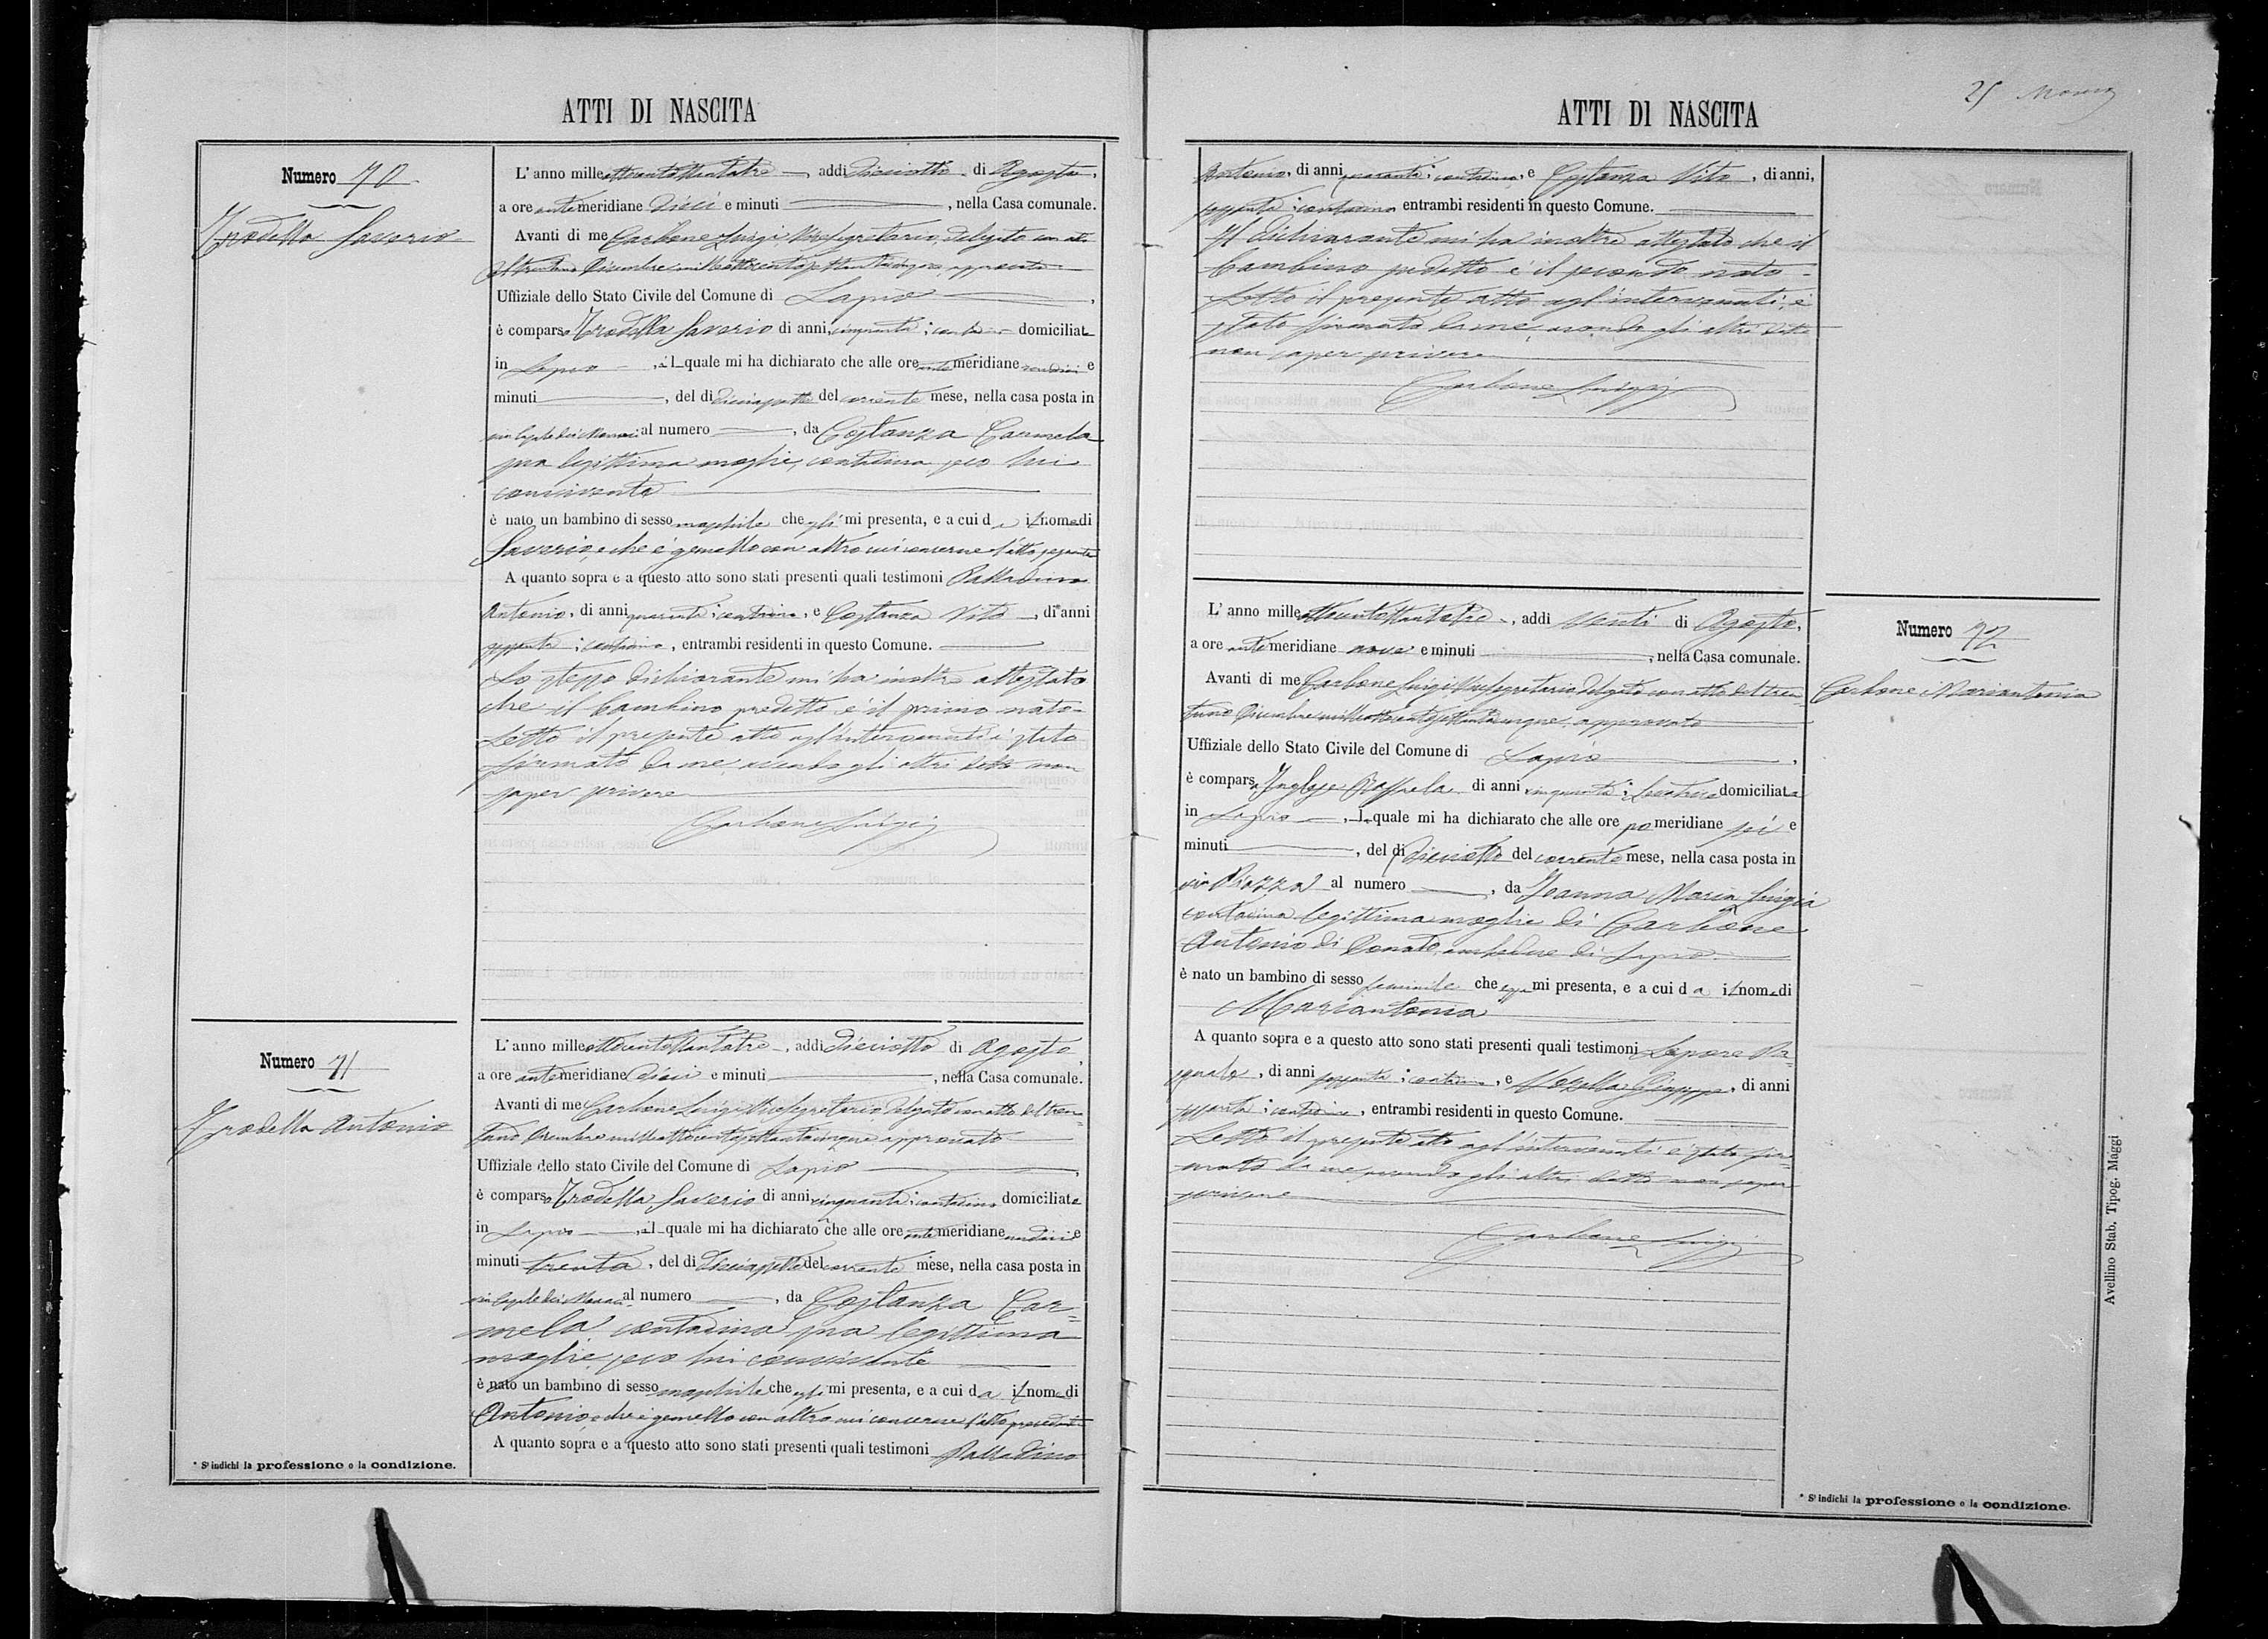 ATTI DI NASCITA
Numero 70
Trodella Saverio
L'anno milleottocentottantatre, addi diciotto di Agosto,
a ore antimeridiane dieci e minuti , nella Casa comunale.
Avanti di me Carbone Luigi Vicesegretario, delegato con atto
del trentuno Dicembre milleottocentosettantacinque, approvato
Uffiziale dello Stato Civile del Comune di Lapio ,
è comparso Trodella Saverio di anni cinquanta; contadino domiciliato
in Lapio , il quale mi ha dichiarato che alle ore antimeridiane undici e
minuti , del di diciassette del corrente mese, nella casa posta in
via al numero , da Costanza Carmela
sua legittima moglie, contadina, seco lui
convivente
è nato un bambino di sesso maschile che egli mi presenta, e a cui dà il nome di
Saverio, e che è gemello con altro cui concerne l'atto seguente
A quanto sopra e a questo atto sono stati presenti quali testimoni Palladino
Antonio, di anni quaranta; contadino, e Costanza Vito, di anni
sessanta; contadino, entrambi residenti in questo Comune.
Lo stesso dichiarante mi ha inoltre attestato
che il bambino predetto è il primo nato.
Letto il presente atto agl'intervenuti è stato
firmato da me, avendo gli altri detto non
saper scrivere
Carbone Luigi
Numero 71
Trodella Antonio
L'anno milleottocentottantatre, addi diciotto di Agosto,
a ore antimeridiane dieci e minuti , nella Casa comunale.
Avanti di me Carbone Luigi Vicesegretario, delegato con atto del tren=
tuno Dicembre milleottocentosettantacinque approvato
Uffiziale dello stato Civile del Comune di Lapio ,
è comparso Trodella Saverio di anni cinquanta; contadino domiciliato
in Lapio , il quale mi ha dichiarato che alle ore antimeridiane undici e
minuti trenta, del di diciassette del corrente mese, nella casa posta in
via al numero , da Costanza Car=
mela contadina sua legittima
moglie, seco lui convivente
è nato un bambino di sesso maschile che egli mi presenta, e a cui dà il nome di
Antonio, e che è gemello con altro cui concerne l'atto precedente
A quanto sopra e a questo atto sono stati presenti quali testimoni Palladino
* Si indichi la professione o la condizione.
25
ATTI DI NASCITA
Antonio, di anni quaranta; contadino, e Costanza Vito, di anni,
sessanta; contadino entrambi residenti in questo Comune.
Il dichiarante mi ha inoltre attestato che il
bambino predetto è il secondo nato.
Letto il presente atto agl'intervenuti, è
stato firmato da me, avendo gli altri detto
non saper scrivere
Carbone Luigi
L'anno milleottocentottantatre, addi venti di Agosto,
a ore antimeridiane nove e minuti , nella Casa comunale.
Avanti di me Carbone Luigi Vicesegretario delegato con atto del tren=
tuno Dicembre milleottocentosettantacinque, approvato
Uffiziale dello Stato Civile del Comune di Lapio ,
è comparsa Inglese Raffaela di anni cinquanta; levatrice domiciliata
in Lapio , la quale mi ha dichiarato che alle ore pomeridiane sei e
minuti , del di diciotto del corrente mese, nella casa posta in
via Piazza al numero , da Ioanna Maria Luigia
contadina legittima moglie di Carbone
Antonio di Donato, ambedue di Lapio
è nato un bambino di sesso femminile che essa mi presenta, e a cui dà il nome di
Mariantonia
A quanto sopra e a questo atto sono stati presenti quali testimoni Lepore Pa
squale, di anni sessanta; contadino, e Giuseppe, di anni
sessanta; contadino, entrambi residenti in questo Comune.
Letto il presente atto agl'intervenuti è stato fir=
mato da me avendo gli altri detto non saper
scrivere
Carbone Luigi
Numero 72
Carbone Mariantonia
* Si indichi la professione o la condizione.
Avellino Stab. Tipog. Maggi